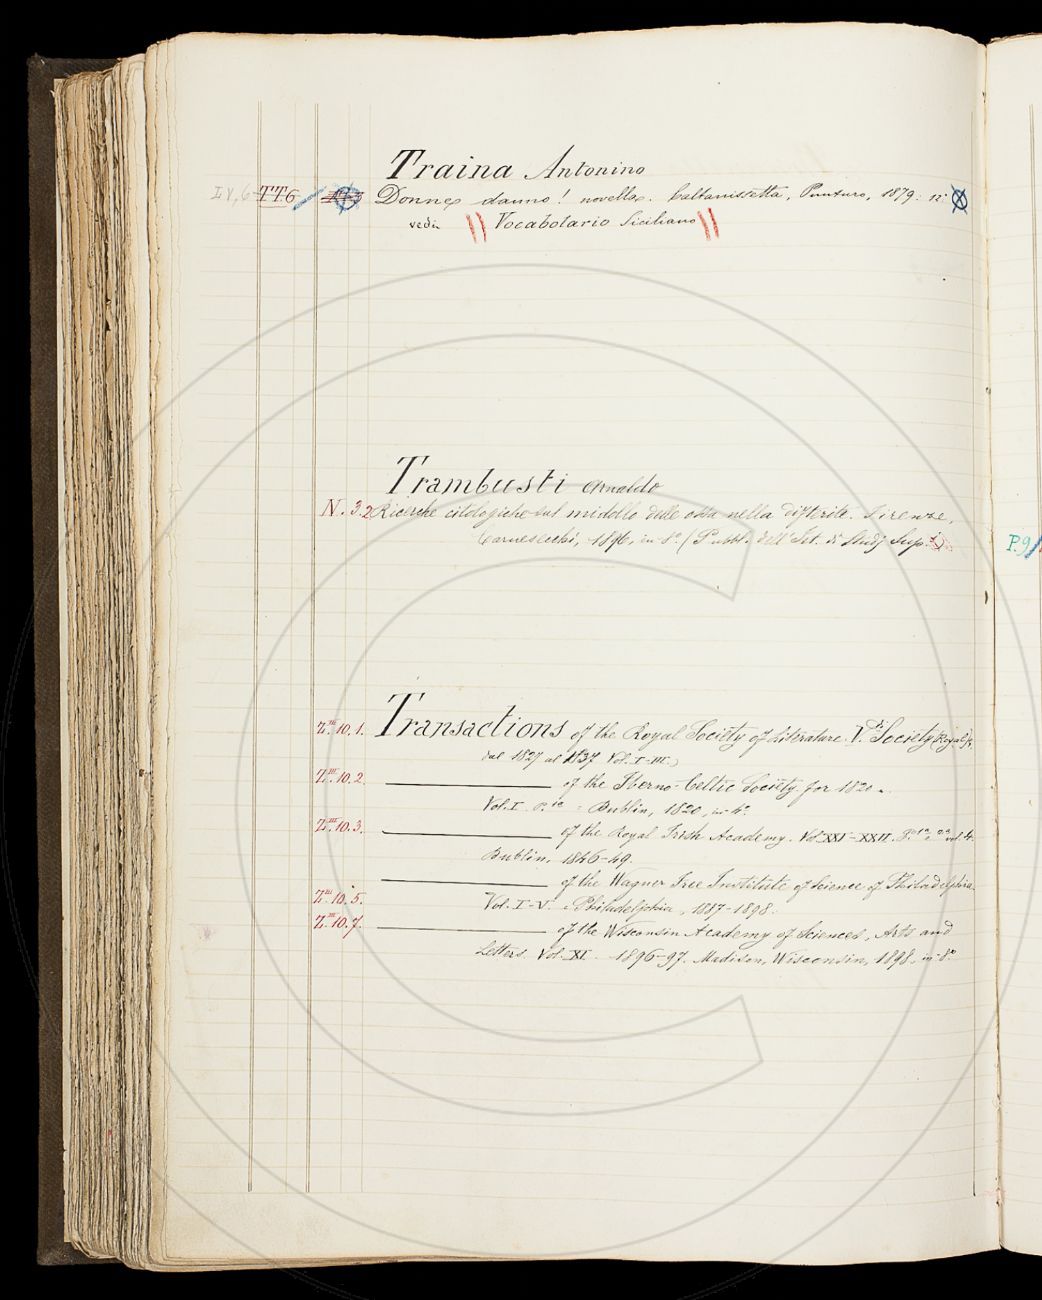 Traina Antonino
TT.6 Donne danno! novelle. Caltanissetta, Punturo, 1879. 12.°
vedi Vocabolario Siciliano
Trambusti Arnaldo
N.3.2 Ricerche citologiche sul midollo delle ossa nella difterite. Firenze,
Carnesecchi, 1896, in 8.° (Pubbl. dell' Ist. di Studj Sup.)
Z.III 10.1. Transactions of the Royal Society of Literature. V. Society (Royal)
dal 1827 al 1837 Vol. I-III.)
Z.III 10.2. of the Iberno-Celtic Society for 1820.
Vol. I = Dublin, 1820, in 4.°
Z.III 10.3. of the Royal Irish Academy. Vol XXI-XXII.
Dublin, 1846-49.
of the Wagner Free Institute of Science of Philadelphia
Z.III 10.5. Vol. I-V. Philadelphia, 1887-1898.
Z.III 10.7. of the Wisconsin Academy of Sciences, Arts and
Letters. Vol. XI. 1896-97. Madison, Wisconsin, 1898, in 8.°
P.9